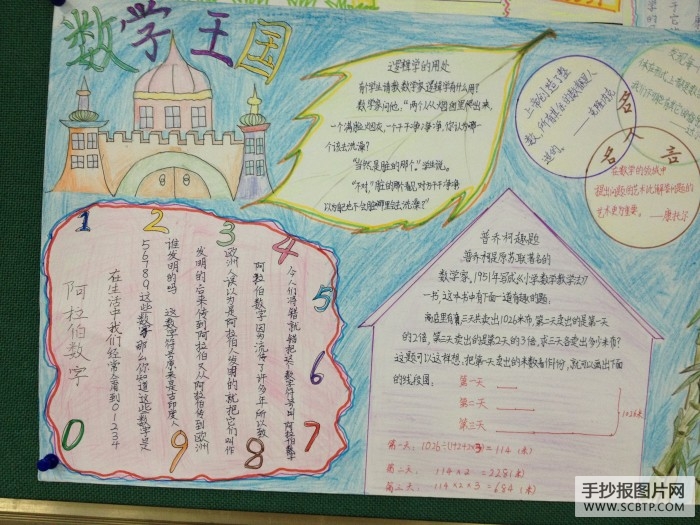 数学王国
逻辑学的用处
有个学生请教数学家逻辑学有什么用?
数学家问他,"两个人从烟囱里爬出来,
一个满脸烟灰,一个干干净净,你认为哪一
个该去洗澡?
"当然是脏的那个。"学生说。
"不对。脏的那个看见对方干干净净
以为
上帝创造了整
数,所有其余的数都是人
造的。
——克隆内克
名人名言
在数学的领域中
提出问题的艺术比解答问题的
艺术更为重要。——康托尔
1 2 3 4 5 6 7 8 9 0
阿拉伯数字
在生活中我们经常会看到01234
56789这些数字那么你知道这些数字是
谁发明的吗 这数字符号原来是古印度人
发明的后来传到阿拉伯又从阿拉伯传到欧洲
欧洲人误以为是阿拉伯人发明的就把它们叫作
阿拉伯数字因为流传了许多年所以致
今人们将错就错把
普乔柯趣题
普乔柯是原苏联著名的
数学家。1951年写成《小学数学教学法》
一书。这本书中有下面一道有趣的题。
商店里有三天共卖出1026米布。第二天卖出的是第一天
的2倍。第三天卖出的是第2天的3倍。求三天各卖出多少米布?
这题可以这样想:把第一天卖出的米数看作1份,就可以画出下面
的线段图:
第一天
第二天
第三天
1026米
第一天: 1026÷(1+2+2×3)=114(米)
第二天: 114×2=228(米)
第三天: 114×2×3=684(米)
手抄报图片网
WWW.SCBTP.COM